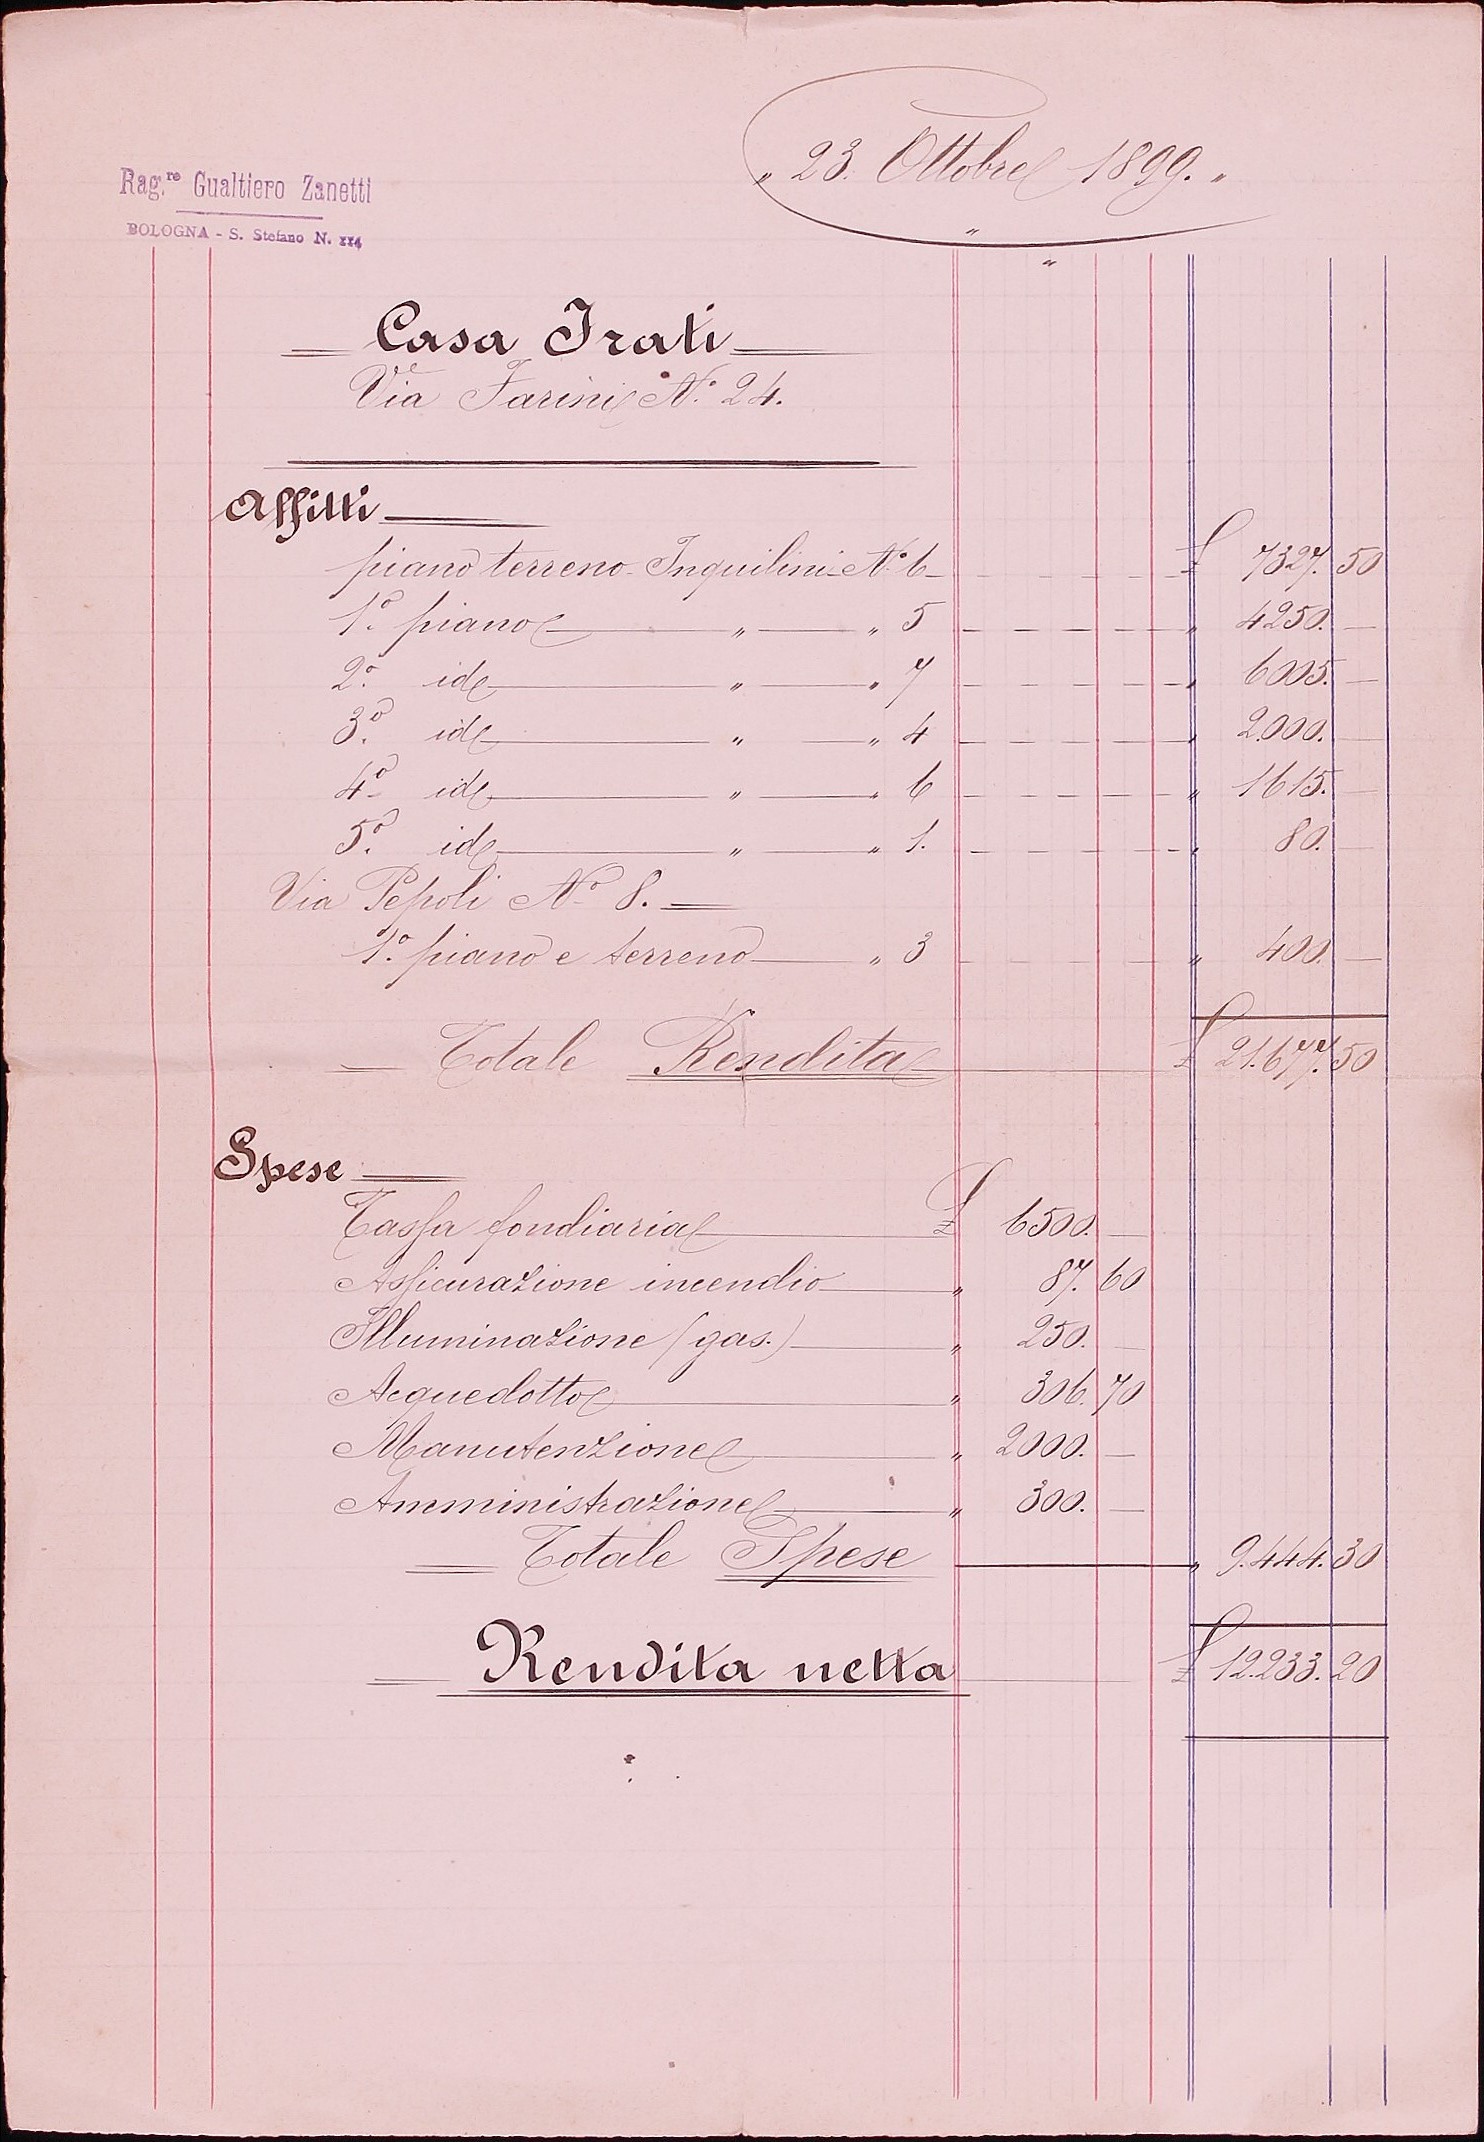 Rag.re Gualtiero Zanetti
BOLOGNA - S. Stefano N. 114
„ 23. Ottobre 1899. „
„
„
Casa Irati
Via Farini N.° 24.
Affitti
piano terreno Inquilini N.° 6 £ 7327. 50
1.° piano „ „ 5 „ 4250. —
2.° id „ „ 7 „ 6005. —
3.° id „ „ 4 „ 2.000. —
4.° id „ „ 6 „ 1615. —
5.° id „ „ 1. „ 80. —
Via Pepoli N.° 8. —
1.° piano e terreno „ 3 „ 400. —
Totale Rendita £ 21.677. 50
Spese
Tassa fondiaria £ 6500. —
Assicurazione incendio „ 87. 60
Illuminazione (gas.) „ 250. —
Acquedotto „ 306. 70
Manutenzione „ 2000. —
Amministrazione „ 300. —
Totale Spese „ 9.444. 30
Rendita netta £ 12.233. 20